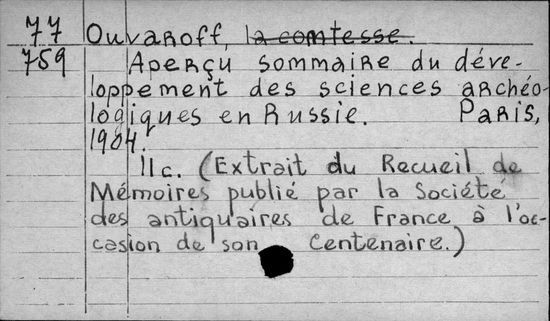 77 Ouvaroff, la comtesse.
759 Aperçu sommaire du déve-
loppement des sciences archéo-
logiques en Russie. Paris,
1904.
11c. (Extrait du Recueil de
Mémoires publié par la Société
des antiquaires de France à l'oc-
casion de son centenaire.)